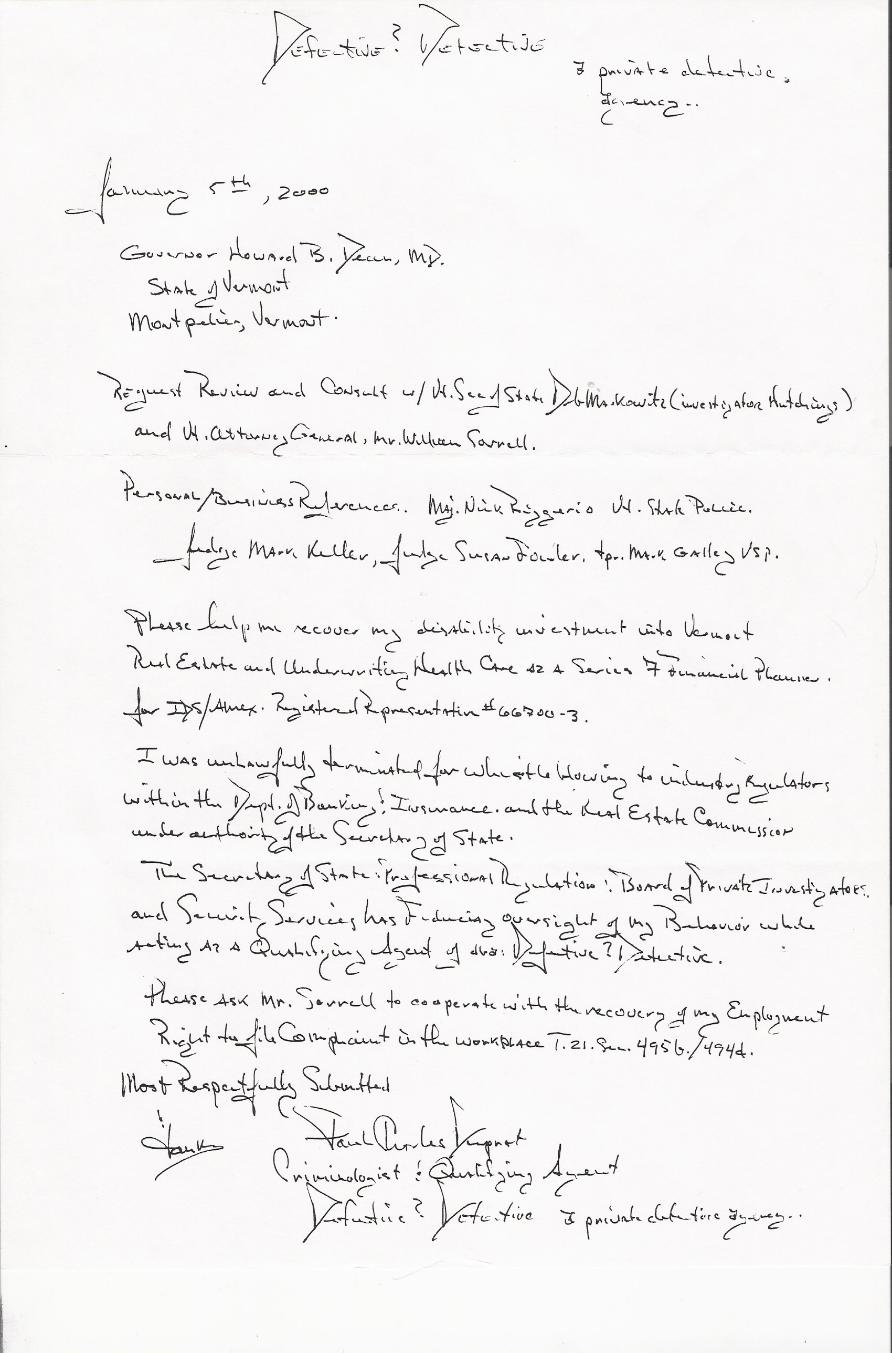 Defective? Detective
a private detective
agency..
January 5th, 2000
Governor Howard B. Dean, MD.
State of Vermont
Montpelier, Vermont.
Request Review and Consult w/ Vt. Sec of State Deb Markowitz (investigator Hutchings)
and Vt. Attorney General, Mr. William Sorrell.
Personal/Business References.. Maj. Nick Ruggerio Vt. State Police.
Judge Mark Keller, Judge Susan Fowler, tpr. Mark Galley VSP.
Please help me recover my disability investment into Vermont
Real Estate and Underwriting Health Care as a Series 7 Financial Planner.
for IDS/Amex. Registered Representative #66700-3.
I was unlawfully terminated for whistle blowing to industry Regulators
within the Dept. of Banking & Insurance. and the Real Estate Commission
under authority of the Secretary of State.
The Secretary of State: Professional Regulation: Board of Private Investigators
and Security Services has Fiducing oversight of my Behavior while
acting as a Qualifying Agent of dba: Defective? Detective.
Please ask Mr. Sorrell to cooperate with the recovery of my Employment
Right to file Complaint in the workplace T.21. Sec. 495b./494d.
Most Respectfully Submitted
&
Thanks
Paul Charles
Criminologist & Qualifying Agent
Defective? Detective a private detective agency..